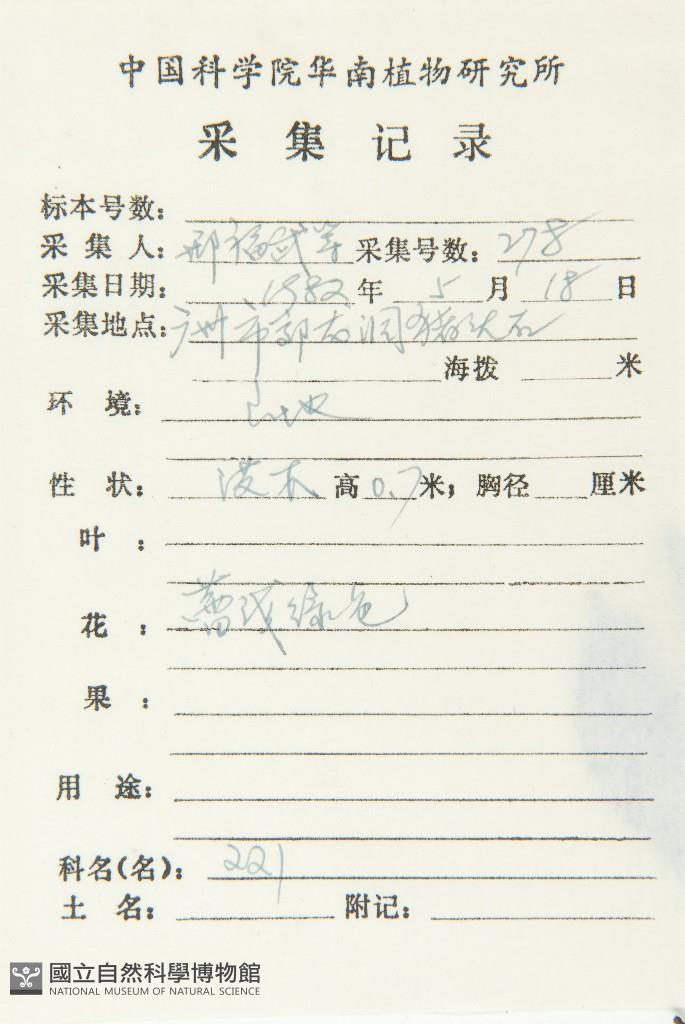 中国科学院华南植物研究所
采集记录
标本号数：
采集人：邢福武等 采集号数：278
采集日期：1982年5月18日
采集地点：广州市郊
海拨 米
环境：山地
性状：灌木 高0.7米；胸径 厘米
叶：
花：蕾浅绿色
果：
用途：
科名(名)：221
土名： 附记：
國立自然科學博物館
NATIONAL MUSEUM OF NATURAL SCIENCE